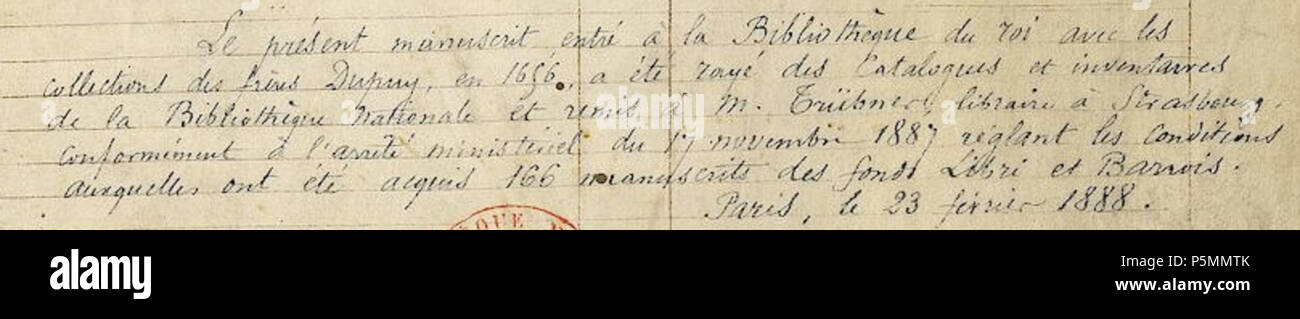 Le présent manuscrit entré à la Bibliothèque du roi avec les
collections des frères Dupuy, en 1656, a été rayé des Catalogues et inventaires
de la Bibliothèque Nationale et remis à M. Trübner, libraire à Strasbourg,
conformément à l'arrêté ministériel du 17 novembre 1887 réglant les conditions
auxquelles ont été acquis 166 manuscrits des fonds Libri et Barrois.
Paris, le 23 février 1888.
QUE
alamy
a
a
alamy
Image ID: P5MMTK
www.alamy.com